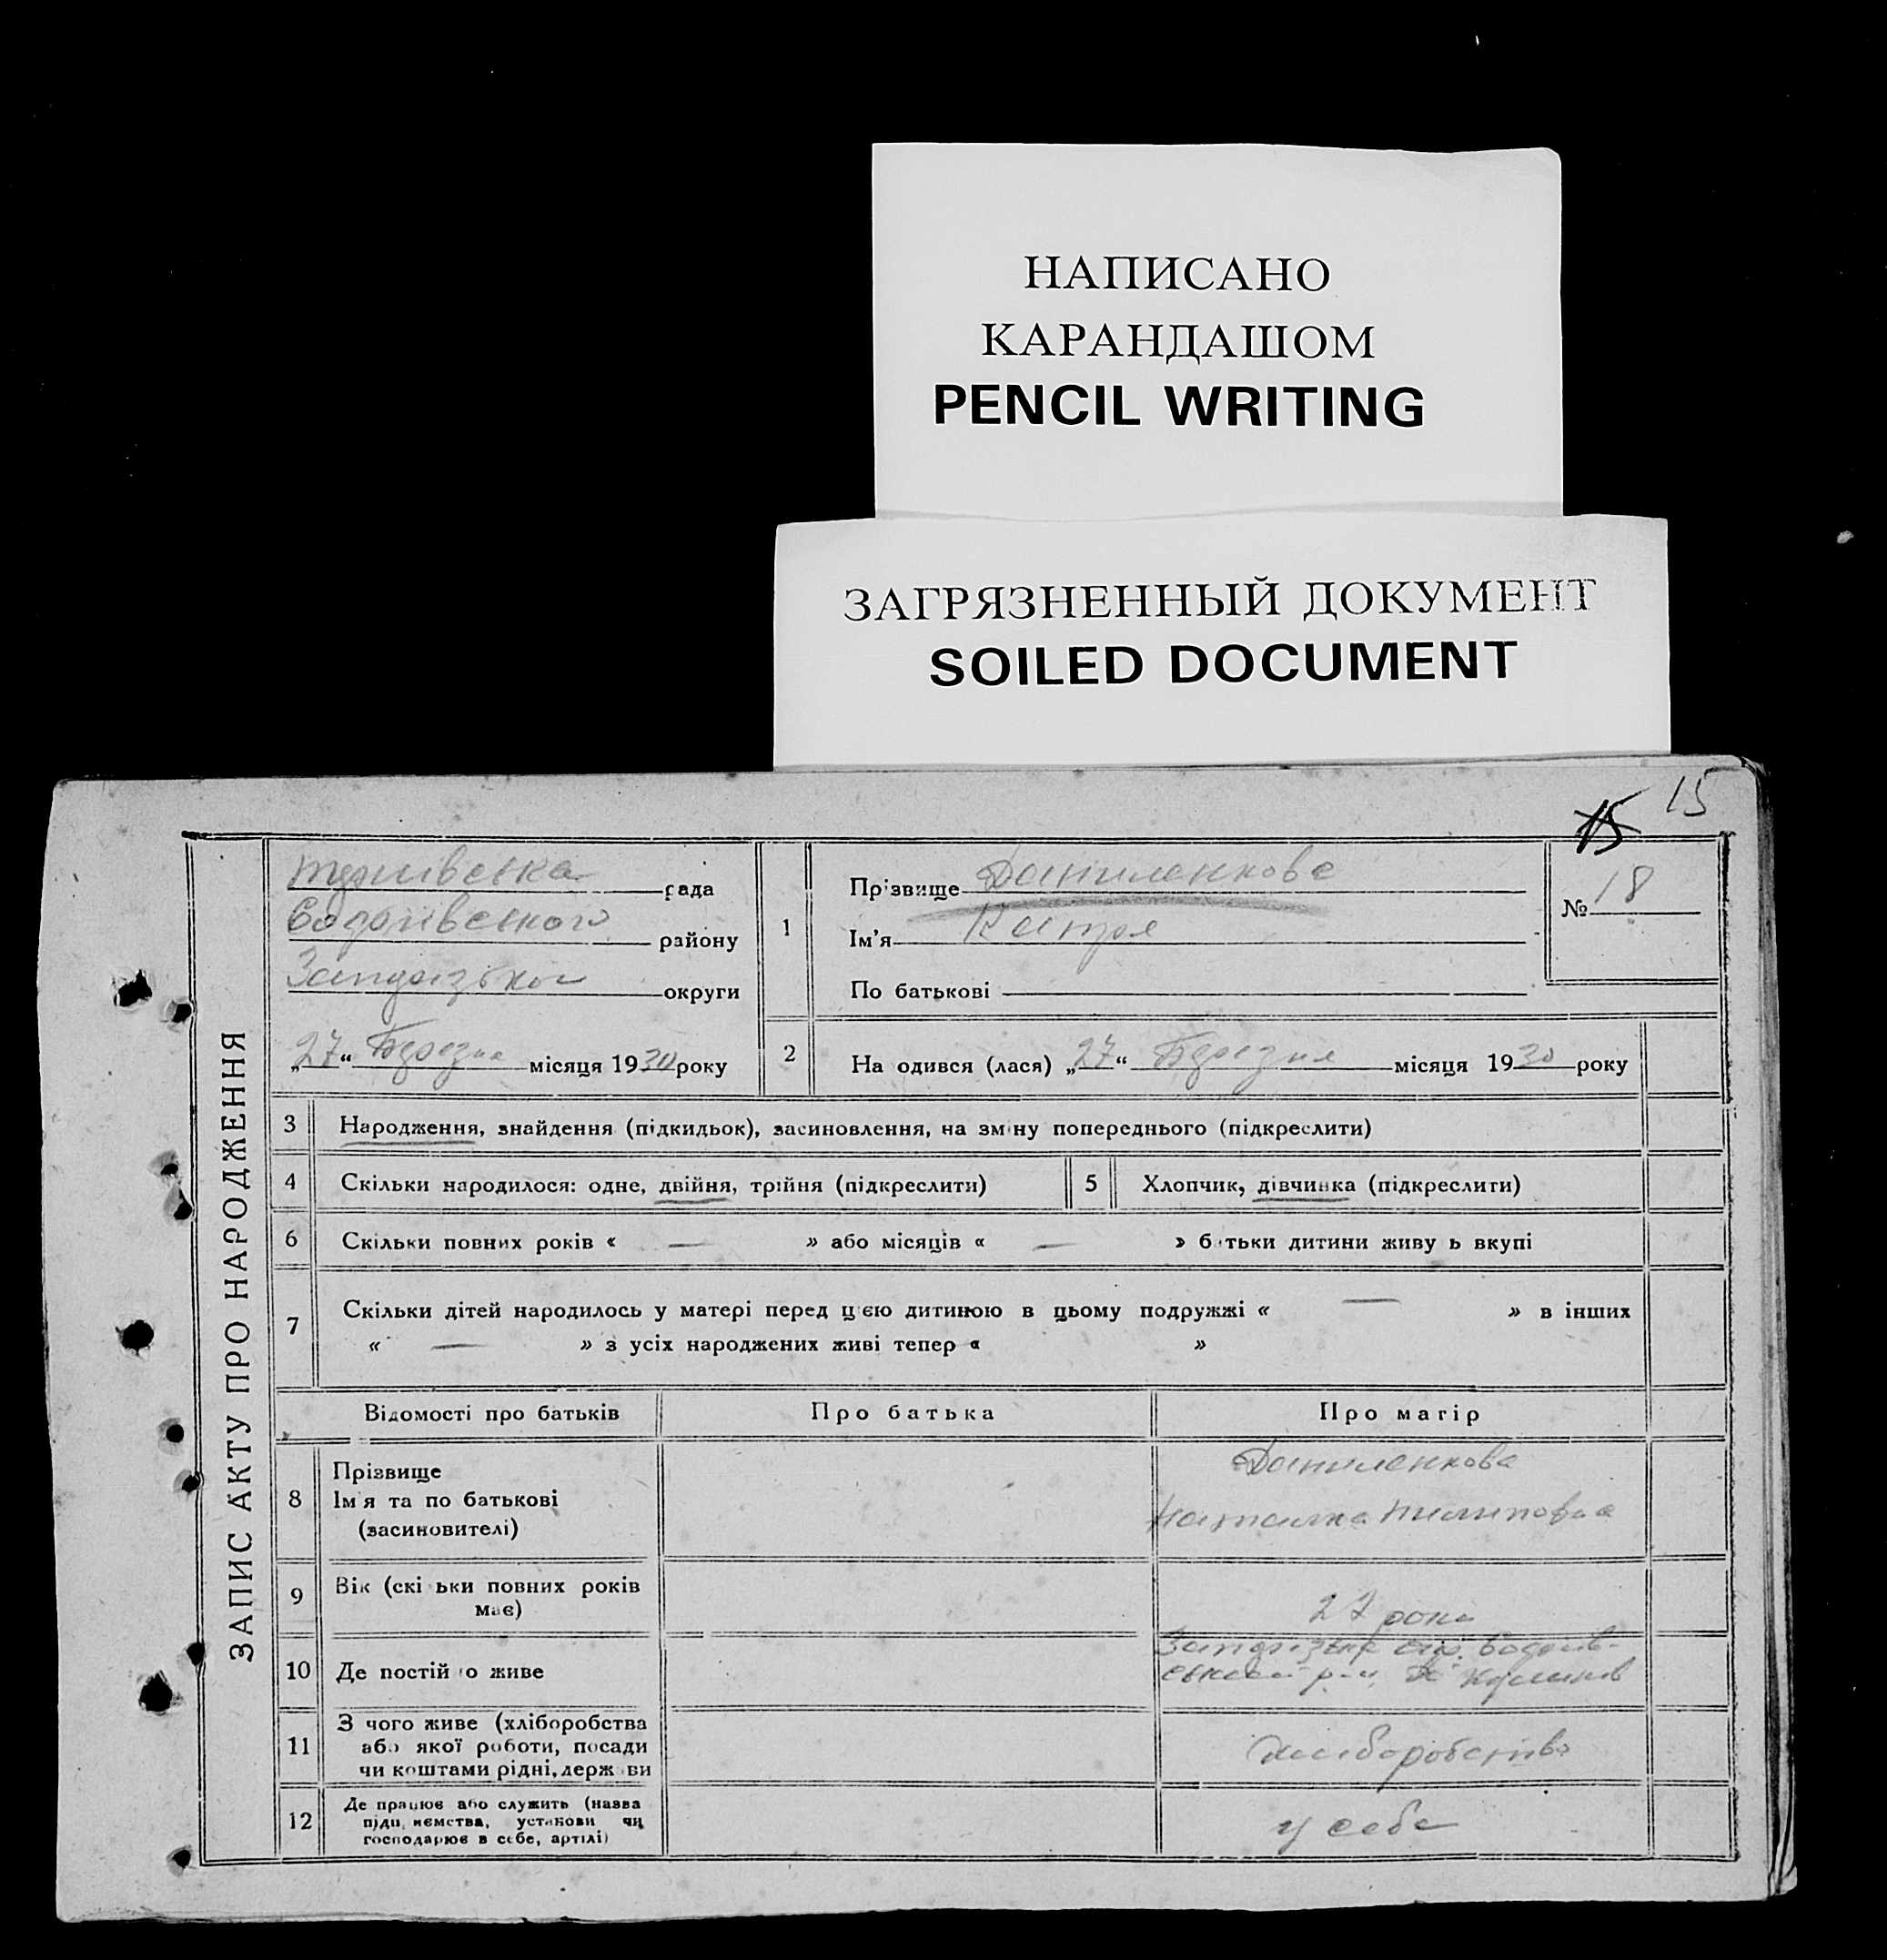 НАПИСАНО
КАРАНДАШОМ
PENCIL WRITING
ЗАГРЯЗНЕННЫЙ ДОКУМЕНТ
SOILED DOCUMENT
15 15
ЗАПИС АКТУ ПРО НАРОДЖЕННЯ
рада
району
округи
„27“ Березня місяця 1930 року
1
Прізвище Даниленкова
Ім'я
По батькові
№ 18
2
На одився (лася) „27“ Березня місяця 1930 року
3 Народження, знайдення (підкидьок), засиновлення, на зміну попереднього (підкреслити)
4 Скільки народилося: одне, двійня, трійня (підкреслити)
5 Хлопчик, дівчинка (підкреслити)
6 Скільки повних років « — » або місяців « — » батьки дитини живу ь вкупі
7 Скільки дітей народилось у матері перед цією дитиною в цьому подружжі « — » в інших
« — » з усіх народжених живі тепер « »
Відомості про батьків Про батька Про матір
8 Прізвище
Ім'я та по батькові
(засиновителі)
Даниленкова
Наталка Пилиповна
9 Вік (скі ьки повних років
має)
27 рок
10 Де постій о живе
11 З чого живе (хліборобства
або якої роботи, посади
чи коштами рідні, держ ви
хліборобство
12 Де працює або служить (назва
підп ємства, установи чи
господарює в себе, артілі)
у себе